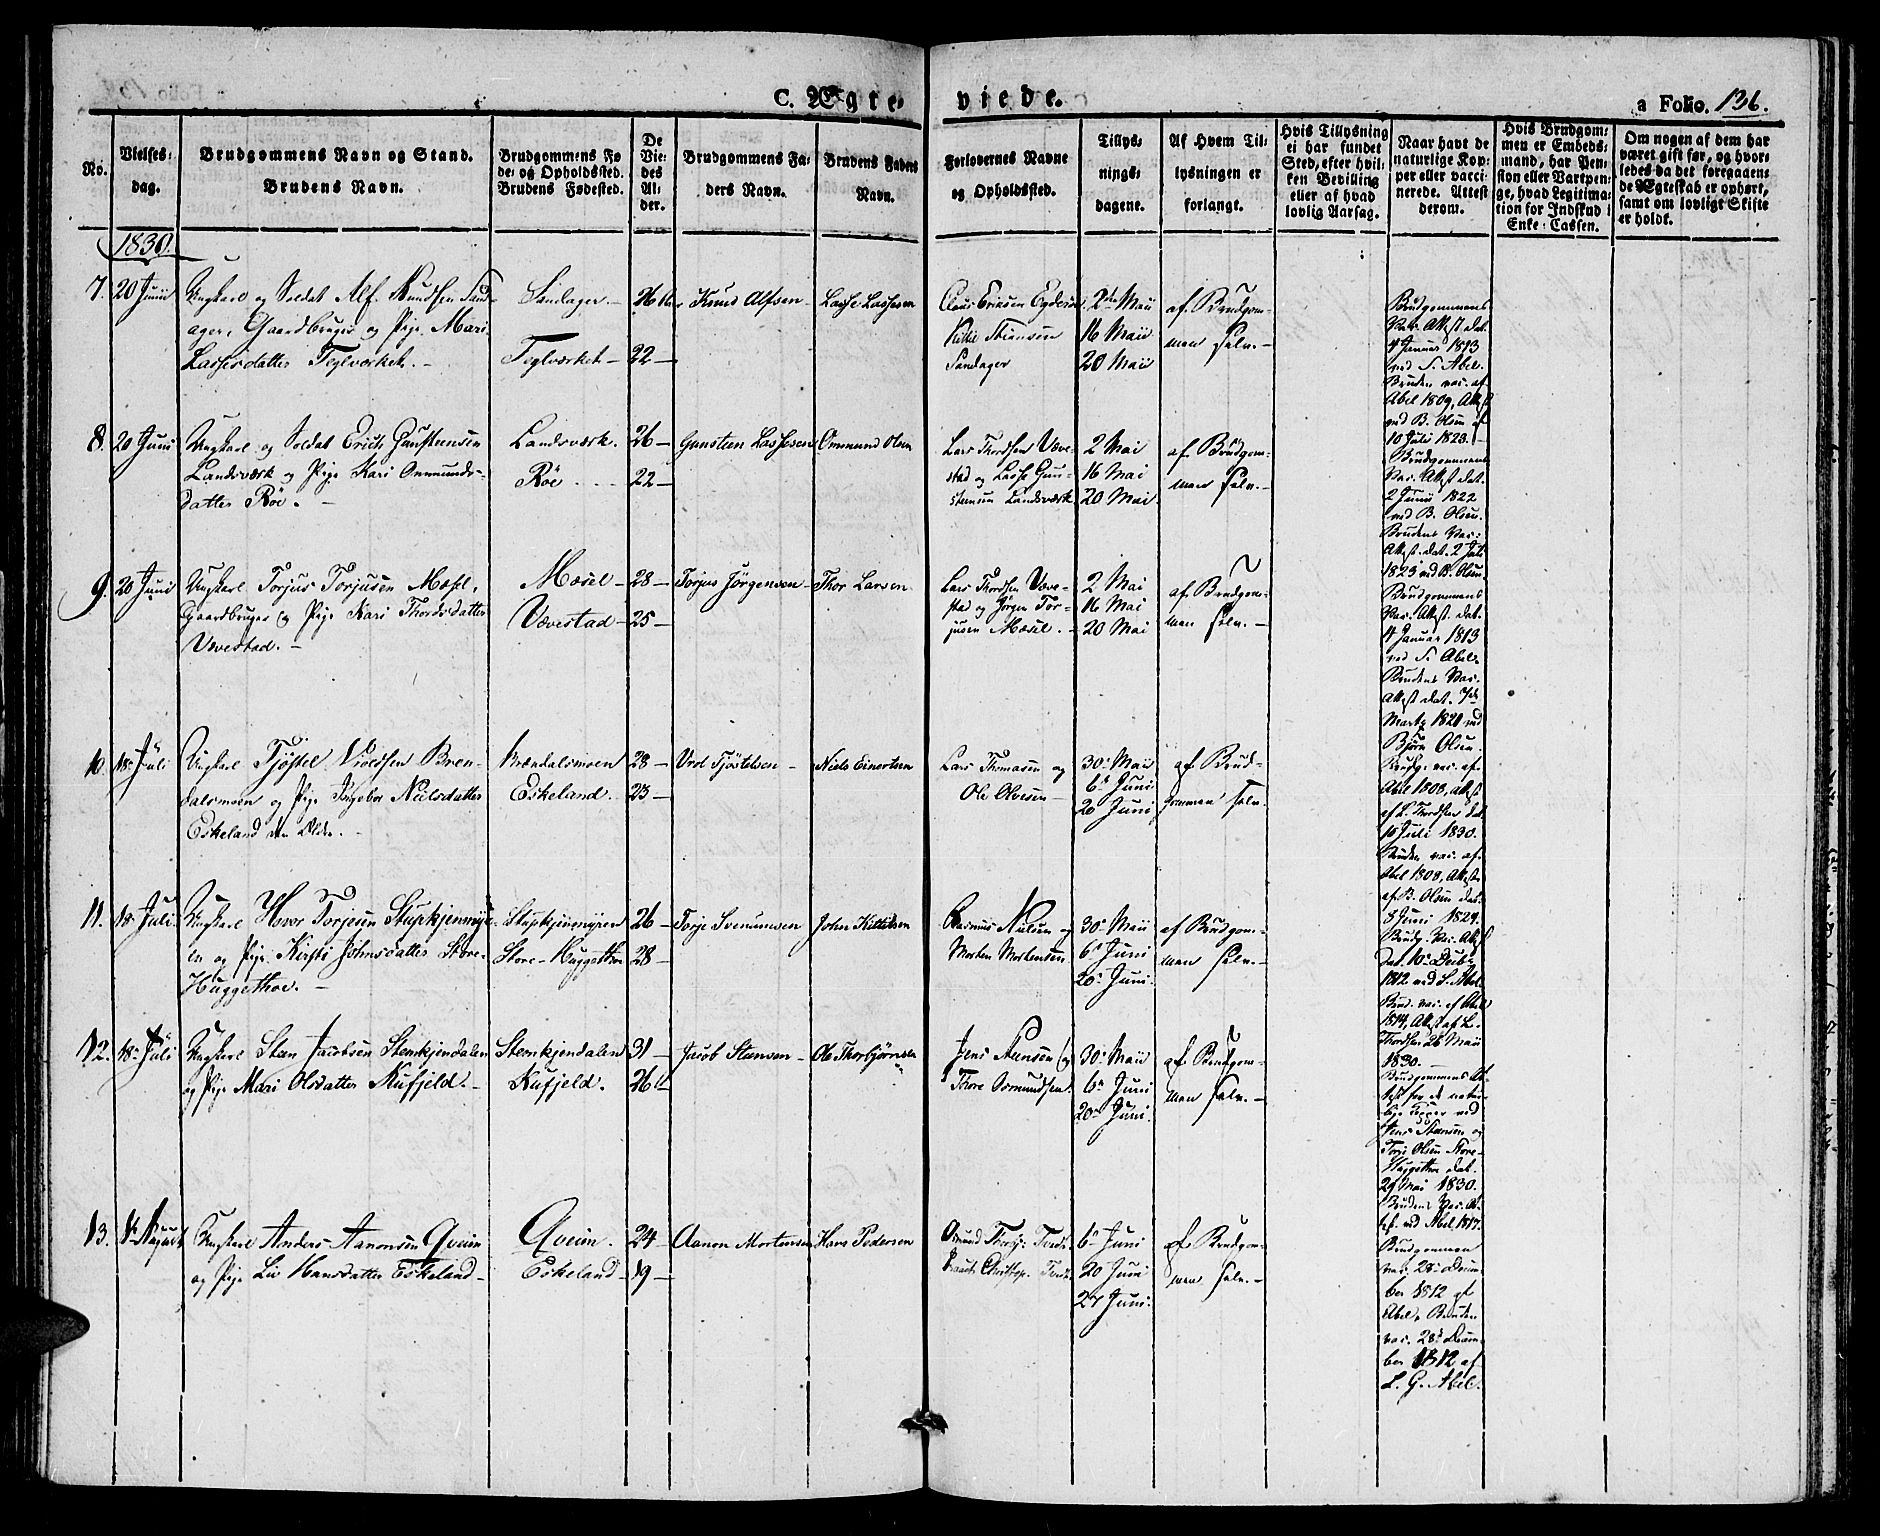 C. Ægte-
viede.
a Folio. 136.
No.
Vielses-
dag.
Brudgommens Navn og Stand.
Brudens Navn.
Brudgommens Fø
de- og Opholdssted.
Brudens Fødested.
De
Vie-
des
Al-
der.
Brudgommens Fa-
ders Navn.
Brudens Faders
Navn.
Forlovernes Navne
og Opholdssted.
Tillys-
nings-
dagene.
Af Hvem Til-
lysningen er
forlangt.
Hvis Tillysning
ei har fundet
Sted, efter hvil-
ken Bevilling
eller af hvad
lovlig Aarsag.
Naar havt de
naturlige Kop-
per eller vacci-
nerede. Attest
derom.
Hvis Brudgom-
men er Embeds-
mand, har Pen-
sion eller Vartpen-
ge, hvad Legitima-
tion for Indskud i
Enke-Cassen.
Om nogen af dem har
været gift før, og hvor-
ledes da det foregaaen-
de Ægteskab er ophørt,
samt om lovligt Skifte
er holdt.
1830.
7. 20 Junii
Ungkarl og Soldat Alf Knudsen Sand-
ager, Gaardbruger og Pige Mari
Lassesdatter Teglverket. -
Sandager. -
Teglværket -
26
22 -
Knud Alfsen -
Lasse Lassesen
Sandager
2den Maii
16 Maii
20 Maii
af Brudgom-
men selv. -
Brudgommens
Vac. Attest dat.
4 Januar 1813
ved S. Abel.
Bruden vac. af
Abel 1809, Attest
ved B. Olsen af
10 Juli 1823. -
8. 20 Junii
Ungkarl og Soldat Erich Gunsteensen
Landsværk og Pige Kari Ommunds-
datter Röe. -
Landsværk.
Röe
26 -
22 -
Gunsteen Lassesen
Ommund Olsen
Lars Thordsen Væve-
stad og Lasse Gun-
steensen Landsværk
2 Mai
16 Mai
20 Mai
af Brudgom-
men selv. -
Brudgommens
Vac. Attest dat.
2 Junii 1822
ved B. Olsen.
Brudens Vac.
Attest dat. 2 Juli
1823 ved B. Olsen.
9. 20 Junii
Ungkarl Torjus Torjusen Mæsel,
Gaardbruger og Pige Kari Thordsdatter
Vævestad. -
Mæsel -
Vævestad -
28 -
25 -
Torjus Jörgensen -
Thor Larsen
Lars Thordsen Væve-
stad og Jörgen Tor-
jusen Mæsel. -
2 Mai
16 Mai
20 Mai
af Brudgom-
men selv. -
Brudgommens
Vac. Attest. dat.
4 Januar 1813
ved S. Abel.
Brudens Vac.
Attest dat. 7de
Marts 1821 ved
Björn Olsen.
10. 18. Juli
Ungkarl Tjöstel Vroldsen Bren-
dalsmoen og Pige Ingebor Nielsdatter
Eskeland den Ældre. -
Brændalsmoen
Eskeland. -
28 -
23 -
Vrol Tjöstelsen -
Niels Einertsen
Lars Thomasen og
Ole Olvesen -
30. Maii
6. Juni
20 Juni
af Brud-
gommen selv.
Brudg. vac. af
Abel 1808, attest
af L. Thordsen dat.
10 Juli 1830.
Bruden vac. af
Abel 1808, Attest
af B. Olsen dat.
8 Juni 1829.
11. 18. Juli
Ungkarl Hover Torjesen Stupkjenmyr-
en og Pige Kirsti Johnsdatter Store-
Huggethoe. -
Stupkjenmyren
Store-Huggethoe
26 -
28 -
Torje Svenumsen
John Kittelsen
Rasmus Nielsen og
Morten Mortensen
30. Maii
6. Juni
20. Juni.
af Brudgom-
men selv. -
Brudg. Vac. Attest
dat. 10. Decbr
1812 ved S. Abel.
Brud. vac. af Abel
1814, Attest af L.
Thordsen 26 Maii
1830. -
12. 18. Juli
Ungkarl Sten Jacobsen Stemkjendalen
og Pige Mari Olsdatter Kufjeld. -
Stemkjendalen
Kufjeld.
31 -
26
Jacob Steensen -
Ole Thorbjörnsen
Jens Steensen og
Thore Osmundsen.
30. Maii
6. Juni
20. Juni.
af Brudgom-
men selv. -
Brudgommens At-
test for de natur-
lige Kopper ved
Jens Steensen og
Torje Olsen Store-
Huggethoe dat.
29 Mai 1830.
Brudens Vac. At-
test. ved Abel 1817.
13. 1. August
Ungkarl Anders Aanonsen Qveim
og Pige Liv Hansdatter Eskeland -
Qveim.
Eskeland -
24 -
19 -
Aanon Mortensen
Hans Pedersen
6. Juni
20 Juni
27 Juni.
af Brudgom-
men selv. -
Brudgommen
vac. 28. Decem-
ber 1812 af
Abel, Bruden
vac. 28. Decem-
ber 1812 af
L. G. Abel.